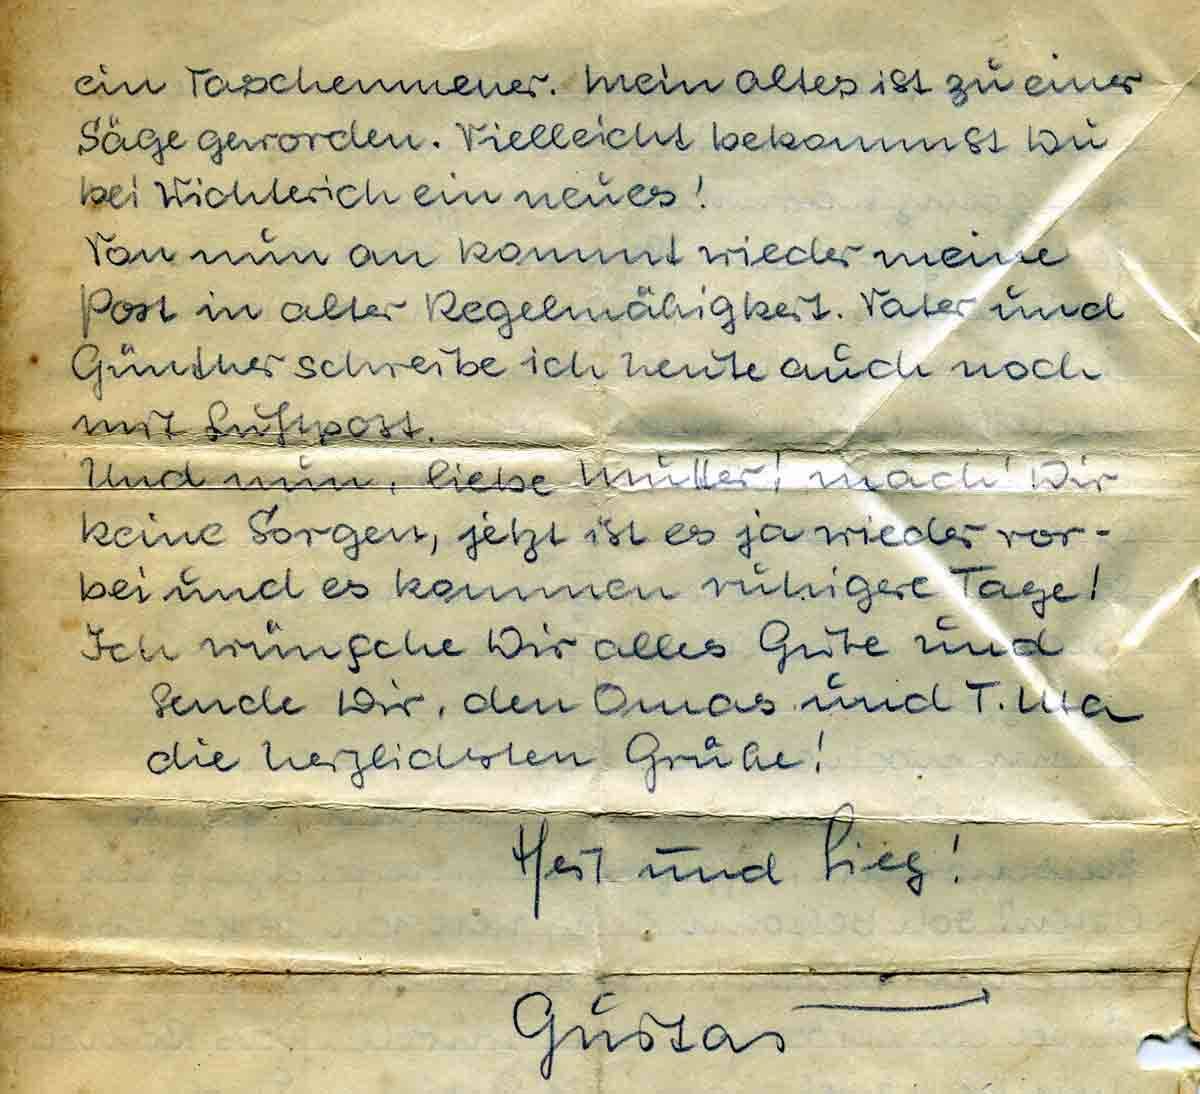 ein Taschenmesser. Mein altes ist zu einer
Säge geworden. Vielleicht bekommst Du
bei Wichterich ein neues!
Von nun an kommt wieder meine
Post in alter Regelmäßigkeit. Vater und
Günther schreibe ich heute auch noch
mit Luftpost.
Und nun, liebe Mutter! mach' Dir
keine Sorgen, jetzt ist es ja wieder vor-
bei und es kommen ruhigere Tage!
Ich wünsche Dir alles Gute und
sende Dir, den Omas und T. Uta
die herzlichsten Grüße!
Heil und Sieg!
Gustav